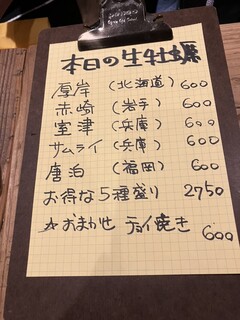 本日の生牡蠣
厚岸 (北海道) 600
赤崎 (岩手) 600
室津 (兵庫) 600
サムライ (兵庫) 600
唐泊 (福岡) 600
お得な5種盛り 2750
☆おまかせ チョイ焼き 600